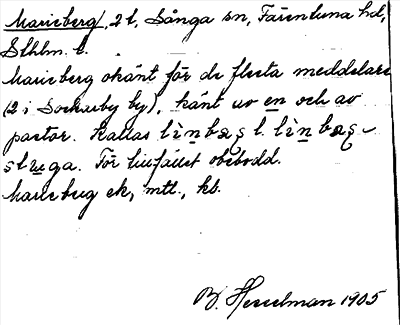 Marieberg, 2 t, Sånga sn, Färentuna hd,
Sthlm. l.
Marieberg okänt för de flesta meddelare
(2 i Sockarby by), känt av en och av
pastor. Kallas lìnbæg l. lìnbæg-
stuga. För tillfället obebodd.
Marieberg ek, mtl., kb.
B. Hesselman 1905